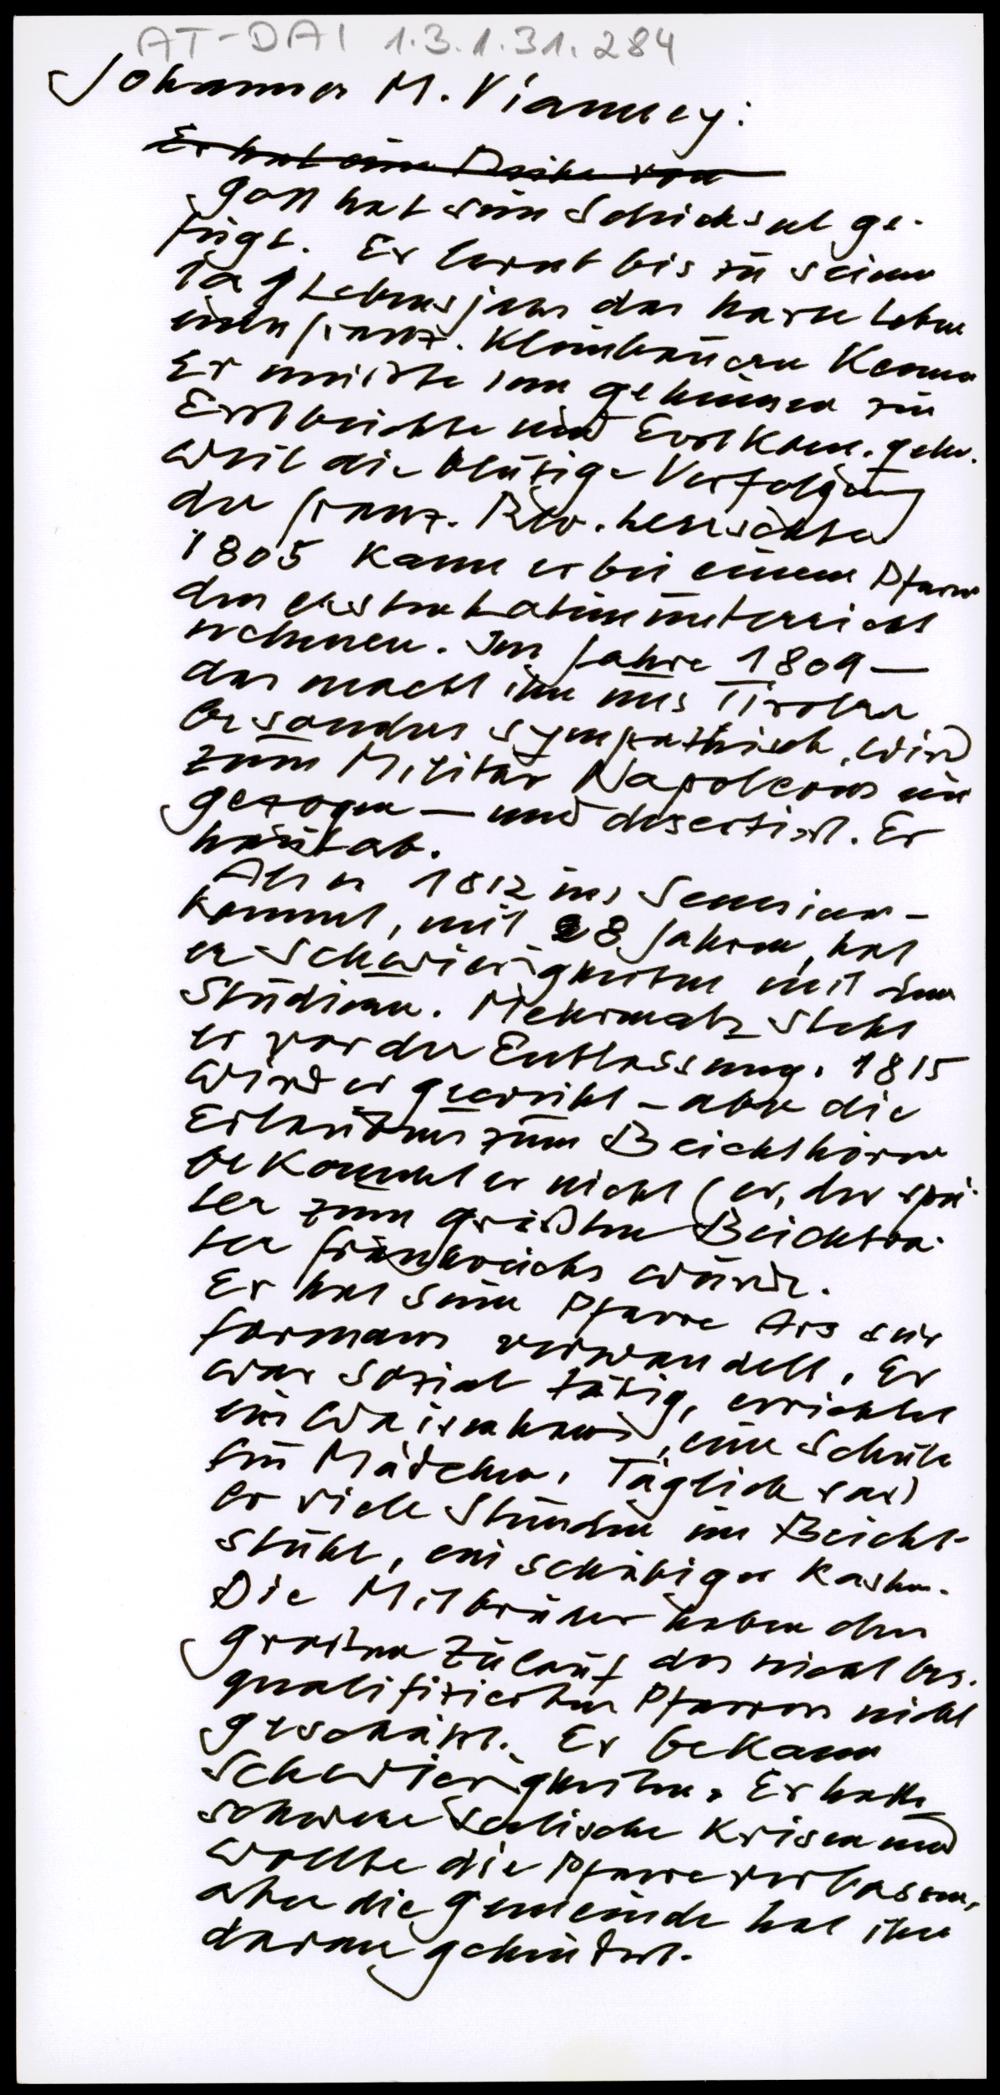 AT-DAI 1.3.1.31.284
Johannes M. Vianney:
Er hat eine Reihe von
Gott hat sein Schicksal ge-
fügt. Er lernt bis zu seinem
Lebensjahr das harte Leben
eines franz. Kleinbauern kennen
Er musste im geheimen zur
Erstbeichte und Erstkom. gehn.
weil die blutige Verfolgung
der franz. Rev. herrschte
1805 kann er bei einem Pfarrer
den ersten Lateinunterricht
nehmen. Im Jahre 1809 —
das macht ihn uns Tirolern
besonders sympathisch, wird
zum Militär Napoleons ein
gezogen — und desertiert. Er
haut ab.
Als er 1812 ins Seminar
kommt, mit 28 Jahren, hat
er Schwierigkeiten mit dem
Studium. Mehrmals steht
er vor der Entlassung. 1815
wird er geweiht – aber die
Erlaubnis zum Beichthören
bekommt er nicht (er, der spä-
ter zum größten Beichtva-
ter Frankreichs wurde.
Er hat seine Pfarre Ars sur
formans verwandelt. Er
war sozial tätig, errichtet
ein Waisenhaus, eine Schule
für Mädchen. Täglich sass
er viele Stunden im Beicht-
stuhl, ein schäbiger Kasten.
Die Mitbrüder haben den
großen Zulauf des nicht bes.
qualifizierten Pfarrers nicht
geschätzt. Er bekam
Schwierigkeiten. Er hatte
schwere seelische Krisen und
wollte die Pfarre verlassen,
aber die Gemeinde hat ihn
daran gehindert.